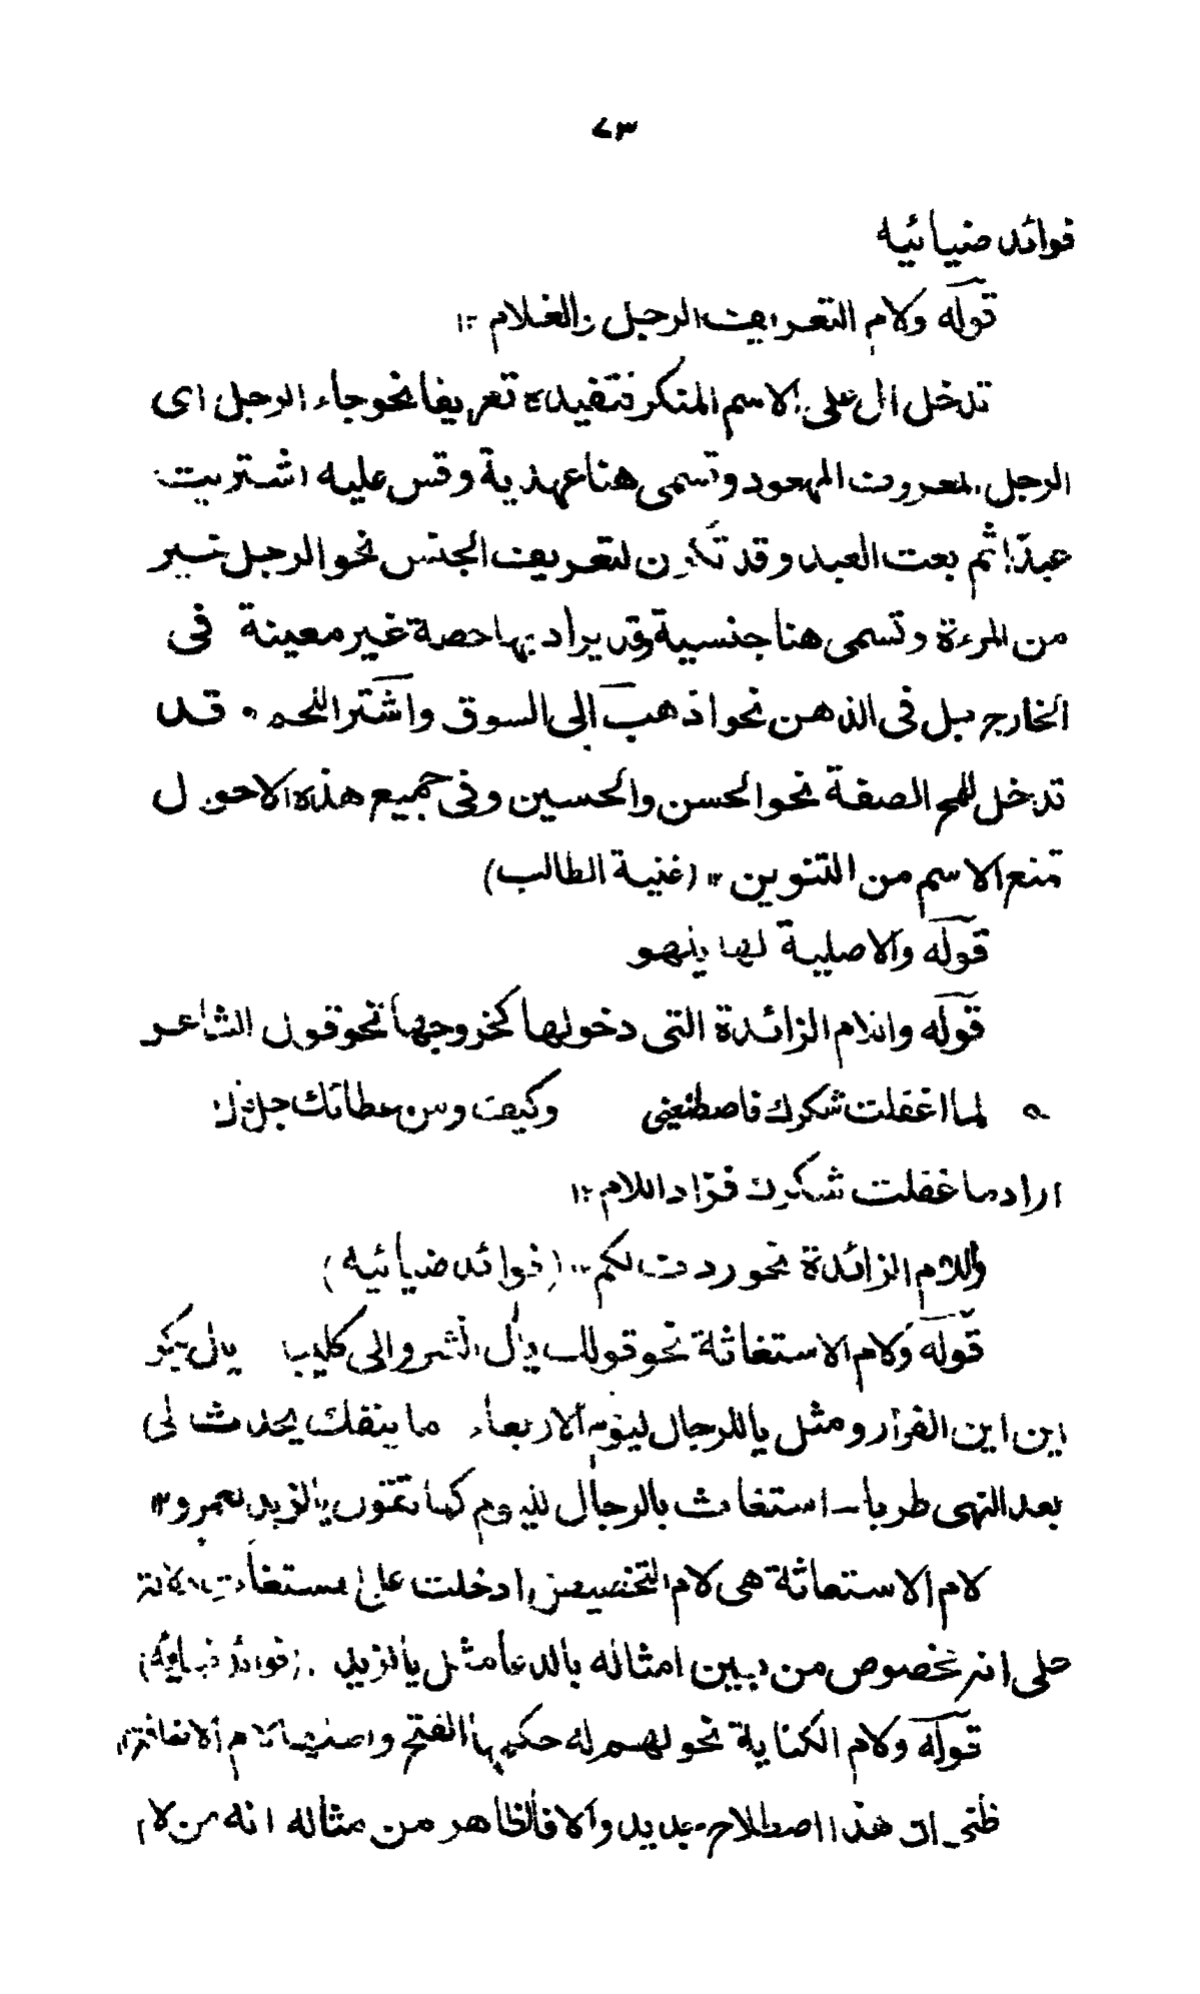 ٧٣
فوائد ضيائيه
قوله ولام التعريف الرجل والغلام ١٢
تدخل ال على الاسم المنكر فتفيده تعريفا نحو جاء الرجل اى
الرجل المعروف المعهود وتسمى هنا عهدية وقس عليه اشتريت
عبدا ثم بعت العبد وقد تكون لتعريف الجنس نحو الرجل خير
من المرءة وتسمى هنا جنسية وقد يراد بها حصة غير معينة فى
الخارج بل فى الذهن نحو اذهب الى السوق واشتر اللحم قد
تدخل للمح الصفة نحو الحسن والحسين وفى جميع هذه الاحول
تمنع الاسم من التنوين ١٢ (غنية الطالب)
قوله والاصلية لها يلهو
قوله واللام الزائدة التى دخولها كخروجها نحو قول الشاعر
لما اغفلت شكرك فاصطنعنى وكيف ومن عطائك جل
اراد ما غفلت شكرك فزاد اللام ١٢
واللام الزائدة نحو ردف لكم ١٢ (فوائد ضيائيه)
قوله ولام الاستغاثة نحو قولك يال انشروا لى كليبا يال بكر
اين اين الفرار ومثل ياللرجال ليوم الاربعاء ما ينفك يحدث لى
بعد النهى طربا - استغاث بالرجال لليوم كما تقول يالزيد لعمرو ١٢
لام الاستغاثة هى لام التخصيص ادخلت على المستغاث دلالة
على انه مخصوص من بين امثاله بالدعا مثل يالزيد (فوائد ضيائيه)
قوله ولام الكناية نحو لهم له حكمها الفتح واصلها لام الاضافة
ظنى ان هذا اصطلاح جديد والا فالظاهر من مثاله انه من لام